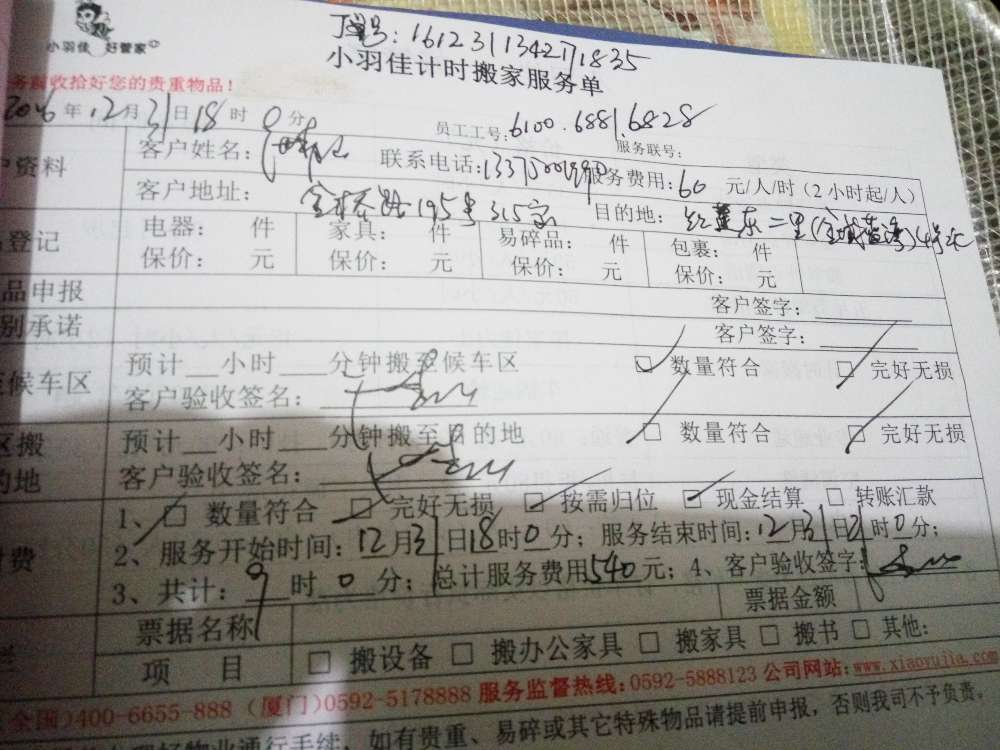 小羽佳 好管家
单号:161231134271835
小羽佳计时搬家服务单
务必收拾好您的贵重物品!
2016年12月31日18时0分
员工工号:6100.6881.6828
服务联号:
户资料
客户姓名:
联系电话:
服务费用:60元/人/时(2小时起/人)
客户地址:金桥路195号315室
目的地:
登记
电器: 件 家具: 件 易碎品: 件 包裹: 件
保价: 元 保价: 元 保价: 元 保价: 元
品申报
客户签字:
别承诺
客户签字:
候车区
预计 小时 分钟搬至候车区
数量符合 完好无损
客户验收签名:
区搬
的地
预计 小时 分钟搬至目的地
数量符合 完好无损
客户验收签名:
1、 数量符合 完好无损 按需归位 现金结算 转账汇款
2、服务开始时间:12月31日18时0分;服务结束时间:12月31日21时0分;
付费
3、共计:9时0分;总计服务费用540元;4、客户验收签字:
票据名称
票据金额
项 目
搬设备 搬办公家具 搬家具 搬书 其他:
全国)400-6655-888(厦门)0592-5178888 服务监督热线:0592-5888123 公司网站:www.xiaoyujia.com
好物业通行手续,如有贵重、易碎或其它特殊物品请提前申报,否则我司不予负责。